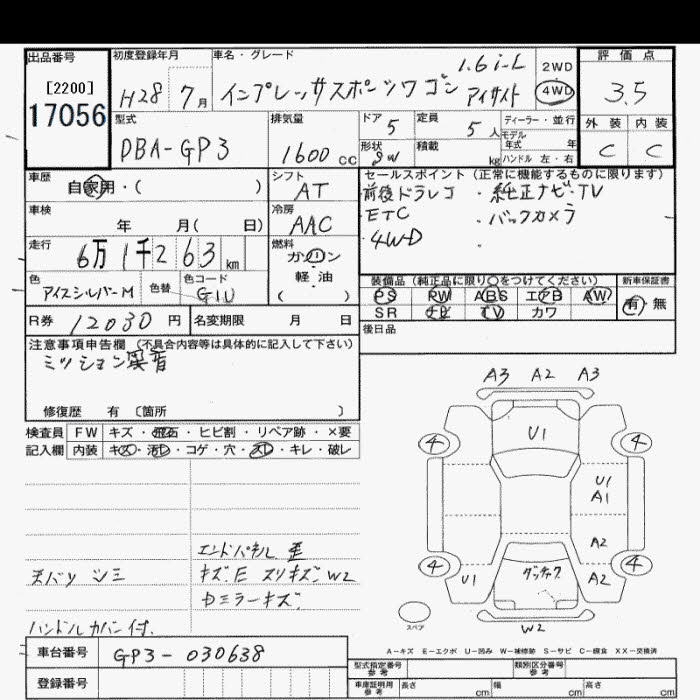 出品番号 初度登録年月 車名・グレード 評価点
[2200]
17056
H28 7月 インプレッサスポーツワゴン 1.6i-L アイサイト 2WD 4WD 3.5
型式 排気量 ドア 定員 ディーラー・並行 外装 内装
DBA-GP3 1600cc 5 5人 モデル年式 年 C C
形状 SW 積載 kg ハンドル 左・右
車歴 自家用・( ) シフト AT セールスポイント(正常に機能するものに限ります)
車検 年 月( 日) 冷房 AAC
・前後ドラレコ ・純正ナビ・TV
・ETC ・バックカメラ
・4WD ・
走行 6万1千263km 燃料 ガソリン 軽油 ( )
色 アイスシルバーM 色替 色コード G1U
装備品(純正品に限り○をつけてください) 新車保証書
PS PW ABS エアB AW 有・無
SR ナビ TV カワ
R券 12030円 名変期限 月 日 後日品
注意事項申告欄 (不具合内容等は具体的に記入して下さい)
ミッション異音
修復歴 有 〔箇所 〕
検査員 FW キズ・飛石・ヒビ割・リペア跡・×要
記入欄 内装 キズ・汚レ・コゲ・穴・スレ・キレ・破レ
A3 A2 A3
U1
4 4
U1
A1
A2
4 4
U1 A2
W2
スペア
エンドパネル歪
キズ、E スリキズ、W2
ミラーキズ
ハンドルカバー付.
A-キズ E-エクボ U-凹み W-補修跡 S-サビ C-腐食 XX-交換済
車台番号 GP3-030638
登録番号
型式指定番号 参考 類別区分番号 参考
車庫証明用 参考 長さ cm 幅 cm 高さ cm